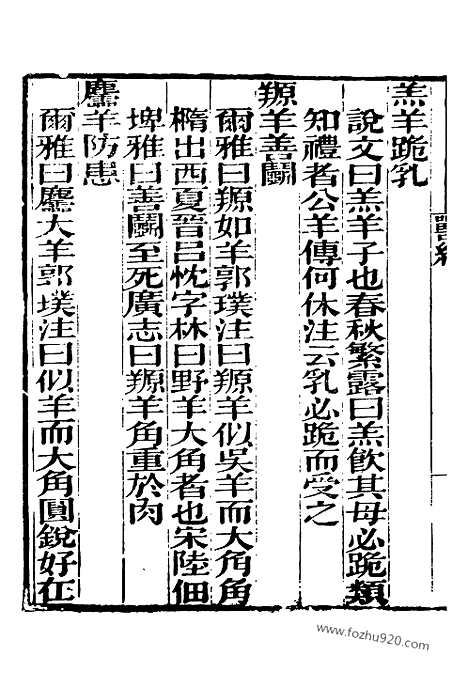 獸經
羔羊跪乳
說文曰羔羊子也春秋繁露曰羔飲其母必跪類
知禮者公羊傳何休注云乳必跪而受之
羱羊善鬬
爾雅曰羱如羊郭璞注曰羱羊似吳羊而大角角
橢出西夏晉呂忱字林曰野羊大角者也宋陸佃
埤雅曰善鬬至死廣志曰羱羊角重於肉
麢羊防患
爾雅曰麢大羊郭璞注曰似羊而大角圓銳好在
www.fozhu920.com